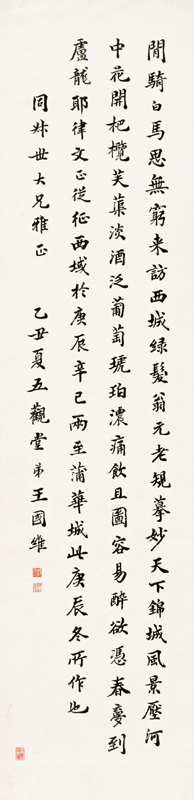 閒騎白馬思無窮来訪西城綠髮翁元老規摹妙天下錦城風景壓河
中花開杷欖芙蕖淡酒泛葡萄琥珀濃痛飲且圖容易醉欲憑春夢到
盧龍耶律文正從征西域於庚辰辛巳兩至蒲華城此庚辰冬所作也
同叔世大兄雅正
乙丑夏五觀堂弟王國維